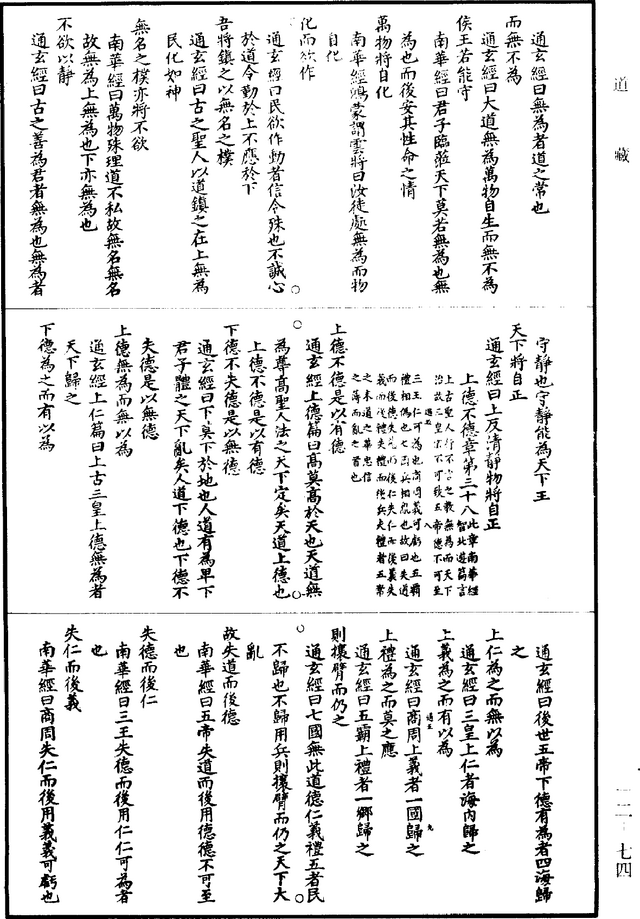 道藏
通玄經曰無為者道之常也
而無不為
通玄經曰大道無為萬物自生而無不為
侯王若能守
南華經曰君子臨蒞天下莫若無為也無
為也而後安其性命之情
萬物將自化
南華經鴻蒙謂雲將曰汝徒處無為而物
自化
化而欲作
通玄經曰民欲作動者信令殊也不誠心
於道令勤於上不應於下
吾將鎮之以無名之樸
通玄經曰古之聖人以道鎮之在上無為
民化如神
無名之樸亦將不欲
南華經曰萬物殊理道不私故無名無名
故無為上無為也下亦無為也
不欲以靜
通玄經曰古之善為君者無為也無為者
守靜也守靜能為天下王
天下將自正
通玄經曰上反清靜物將自正
上德不德章第三十八
此章南華經
智北遊篇言
上古聖人行不言之教無為而天下
治故三皇道不可致五帝德不可至
三王仁可為也商周義可虧也五霸
禮相偽也七國兵相亂也故曰失道
而後德失德而後仁失仁而後義失
義而後禮失禮而後兵夫禮者五常
之末道之華忠信
之薄而亂之首也
過五 八
上德不德是以有德
通玄經上德篇曰高莫高於天也天道無
為尊高聖人法之天下定矣天道上德也
上德不德是以有德
下德不失德是以無德
通玄經曰下莫下於地也人道有為卑下
君子體之天下亂矣人道下德也下德不
失德是以無德
上德無為而無以為
通玄經上仁篇曰上古三皇上德無為者
天下歸之
下德為之而有以為
通玄經曰後世五帝下德有為者四海歸
之
上仁為之而無以為
通玄經曰三皇上仁者海內歸之
上義為之而有以為
通玄經曰商周上義者一國歸之
過五 九
上禮為之而莫之應
通玄經曰五霸上禮者一鄉歸之
則攘臂而仍之
通玄經曰七國無此道德仁義禮五者民
不歸也不歸用兵則攘臂而仍之天下大
亂
故失道而後德
南華經曰五帝失道而後用德德不可至
也
失德而後仁
南華經曰三王失德而後用仁仁可為者
也
失仁而後義
南華經曰商周失仁而後用義義可虧也
一二-七四